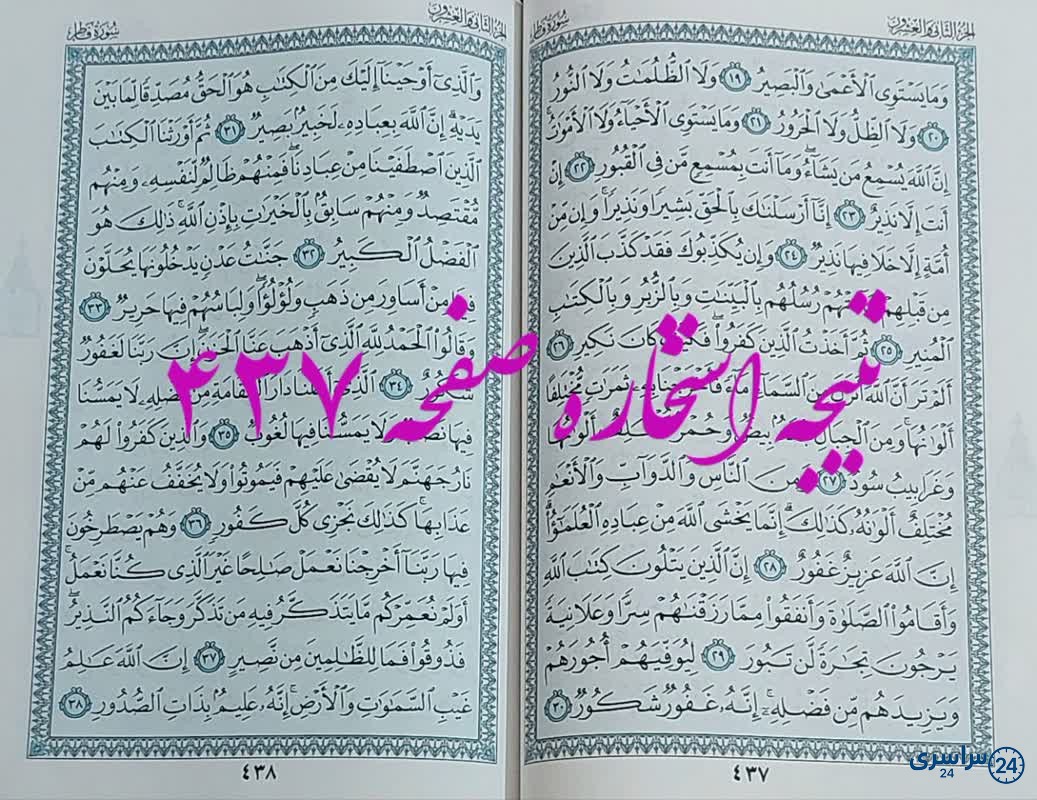 الجزء الثاني والعشرون
سورة فاطر
وَمَا يَسْتَوِى ٱلْأَعْمَىٰ وَٱلْبَصِيرُ ١٩ وَلَا ٱلظُّلُمَٰتُ وَلَا ٱلنُّورُ
٢٠ وَلَا ٱلظِّلُّ وَلَا ٱلْحَرُورُ ٢١ وَمَا يَسْتَوِى ٱلْأَحْيَآءُ وَلَا ٱلْأَمْوَٰتُ ۚ
إِنَّ ٱللَّهَ يُسْمِعُ مَن يَشَآءُ ۖ وَمَآ أَنتَ بِمُسْمِعٍ مَّن فِى ٱلْقُبُورِ ٢٢ إِنْ
أَنتَ إِلَّا نَذِيرٌ ٢٣ إِنَّآ أَرْسَلْنَٰكَ بِٱلْحَقِّ بَشِيرًا وَنَذِيرًا ۚ وَإِن مِّنْ
أُمَّةٍ إِلَّا خَلَا فِيهَا نَذِيرٌ ٢٤ وَإِن يُكَذِّبُوكَ فَقَدْ كَذَّبَ ٱلَّذِينَ
مِن قَبْلِهِمْ جَآءَتْهُمْ رُسُلُهُم بِٱلْبَيِّنَٰتِ وَبِٱلزُّبُرِ وَبِٱلْكِتَٰبِ
ٱلْمُنِيرِ ٢٥ ثُمَّ أَخَذْتُ ٱلَّذِينَ كَفَرُوا۟ ۖ فَكَيْفَ كَانَ نَكِيرِ ٢٦
أَلَمْ تَرَ أَنَّ ٱللَّهَ أَنزَلَ مِنَ ٱلسَّمَآءِ مَآءً فَأَخْرَجْنَا بِهِۦ ثَمَرَٰتٍ مُّخْتَلِفًا
أَلْوَٰنُهَا ۚ وَمِنَ ٱلْجِبَالِ جُدَدٌۢ بِيضٌ وَحُمْرٌ مُّخْتَلِفٌ أَلْوَٰنُهَا
وَغَرَابِيبُ سُودٌ ٢٧ وَمِنَ ٱلنَّاسِ وَٱلدَّوَآبِّ وَٱلْأَنْعَٰمِ
مُخْتَلِفٌ أَلْوَٰنُهُۥ كَذَٰلِكَ ۗ إِنَّمَا يَخْشَى ٱللَّهَ مِنْ عِبَادِهِ ٱلْعُلَمَٰٓؤُا۟ ۗ
إِنَّ ٱللَّهَ عَزِيزٌ غَفُورٌ ٢٨ إِنَّ ٱلَّذِينَ يَتْلُونَ كِتَٰبَ ٱللَّهِ
وَأَقَامُوا۟ ٱلصَّلَوٰةَ وَأَنفَقُوا۟ مِمَّا رَزَقْنَٰهُمْ سِرًّا وَعَلَانِيَةً
يَرْجُونَ تِجَٰرَةً لَّن تَبُورَ ٢٩ لِيُوَفِّيَهُمْ أُجُورَهُمْ
وَيَزِيدَهُم مِّن فَضْلِهِۦٓ ۚ إِنَّهُۥ غَفُورٌ شَكُورٌ ٣٠
٤٣٧
الجزء الثاني والعشرون
سورة فاطر
وَٱلَّذِىٓ أَوْحَيْنَآ إِلَيْكَ مِنَ ٱلْكِتَٰبِ هُوَ ٱلْحَقُّ مُصَدِّقًا لِّمَا بَيْنَ
يَدَيْهِ ۗ إِنَّ ٱللَّهَ بِعِبَادِهِۦ لَخَبِيرٌۢ بَصِيرٌ ٣١ ثُمَّ أَوْرَثْنَا ٱلْكِتَٰبَ
ٱلَّذِينَ ٱصْطَفَيْنَا مِنْ عِبَادِنَا ۖ فَمِنْهُمْ ظَالِمٌ لِّنَفْسِهِۦ وَمِنْهُم
مُّقْتَصِدٌ وَمِنْهُمْ سَابِقٌۢ بِٱلْخَيْرَٰتِ بِإِذْنِ ٱللَّهِ ۚ ذَٰلِكَ هُوَ
ٱلْفَضْلُ ٱلْكَبِيرُ ٣٢ جَنَّٰتُ عَدْنٍ يَدْخُلُونَهَا يُحَلَّوْنَ
فِيهَا مِنْ أَسَاوِرَ مِن ذَهَبٍ وَلُؤْلُؤًا ۖ وَلِبَاسُهُمْ فِيهَا حَرِيرٌ ٣٣
وَقَالُوا۟ ٱلْحَمْدُ لِلَّهِ ٱلَّذِىٓ أَذْهَبَ عَنَّا ٱلْحَزَنَ ۖ إِنَّ رَبَّنَا لَغَفُورٌ
شَكُورٌ ٣٤ ٱلَّذِىٓ أَحَلَّنَا دَارَ ٱلْمُقَامَةِ مِن فَضْلِهِۦ لَا يَمَسُّنَا
فِيهَا نَصَبٌ وَلَا يَمَسُّنَا فِيهَا لُغُوبٌ ٣٥ وَٱلَّذِينَ كَفَرُوا۟ لَهُمْ
نَارُ جَهَنَّمَ لَا يُقْضَىٰ عَلَيْهِمْ فَيَمُوتُوا۟ وَلَا يُخَفَّفُ عَنْهُم مِّنْ
عَذَابِهَا ۚ كَذَٰلِكَ نَجْزِى كُلَّ كَفُورٍ ٣٦ وَهُمْ يَصْطَرِخُونَ
فِيهَا رَبَّنَآ أَخْرِجْنَا نَعْمَلْ صَٰلِحًا غَيْرَ ٱلَّذِى كُنَّا نَعْمَلُ ۚ
أَوَلَمْ نُعَمِّرْكُم مَّا يَتَذَكَّرُ فِيهِ مَن تَذَكَّرَ وَجَآءَكُمُ ٱلنَّذِيرُ ۖ
فَذُوقُوا۟ فَمَا لِلظَّٰلِمِينَ مِن نَّصِيرٍ ٣٧ إِنَّ ٱللَّهَ عَٰلِمُ
غَيْبِ ٱلسَّمَٰوَٰتِ وَٱلْأَرْضِ ۚ إِنَّهُۥ عَلِيمٌۢ بِذَاتِ ٱلصُّدُورِ ٣٨
٤٣٨
نتیجه استخاره صفحه ۴۳۷
سراسری
24
24